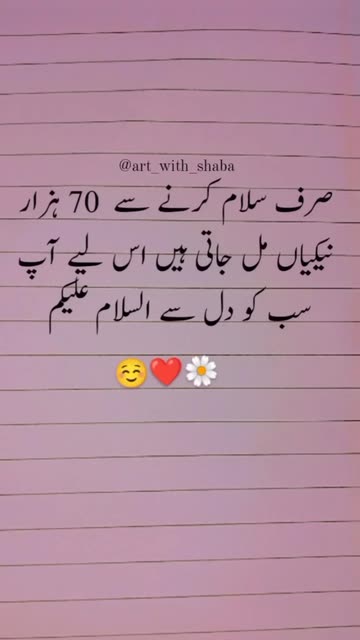 @art_with_shaba
صرف سلام کرنے سے 70 ہزار
نیکیاں مل جاتی ہیں اس لیے آپ
سب کو دل سے السلام علیکم
☺️❤️🌼